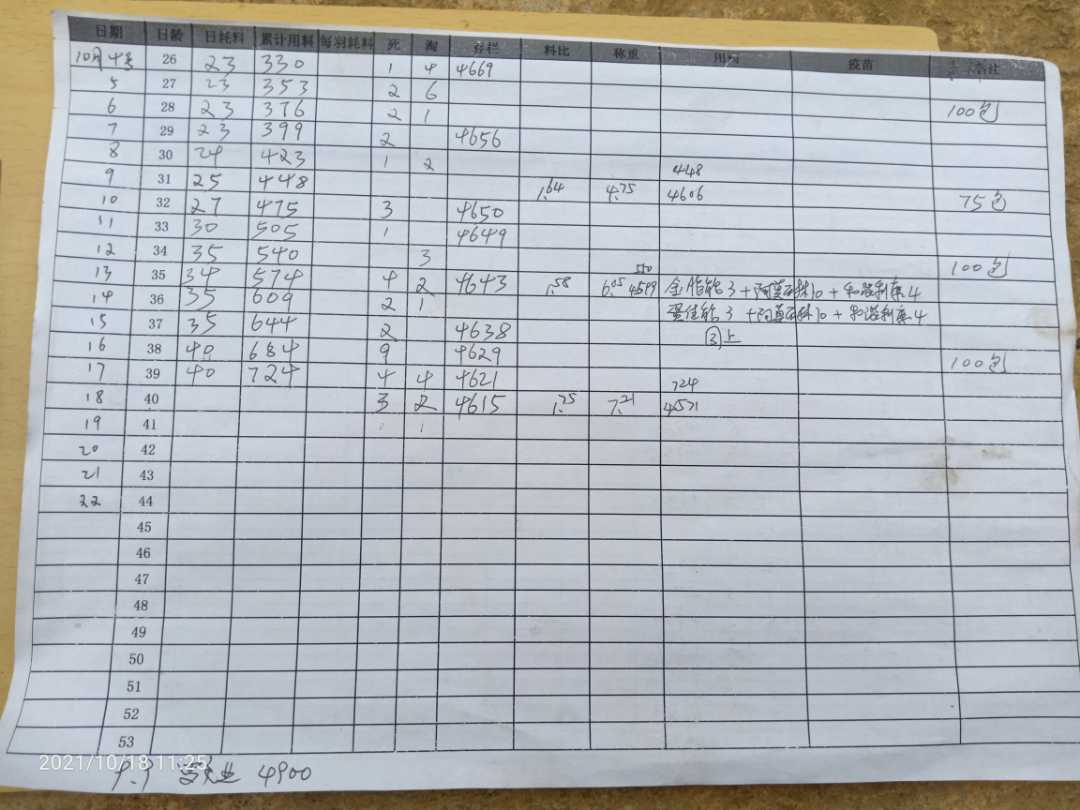 日期 日龄 日耗料 累计用料 每羽耗料 死 淘 存栏 料比 称重 用药 疫苗 备注
10月4号 26 23 330 1 4 4669
5 27 23 353 2 6
6 28 23 376 2 1 100包
7 29 23 399 2 4656
8 30 24 423 1 2 448
9 31 25 448 1.64 4.75 4606 75包
10 32 27 475 3 4650
11 33 30 505 1 4649
12 34 35 540 3 100包
13 35 34 574 4 2 4643 1.58 6.05 4599 3+阿莫西林10+ 4
14 36 35 609 2 1 蛋佳能3+阿莫西林10+ 4
15 37 35 644 2 4638 同上
16 38 40 684 9 4629 100包
17 39 40 724 4 4 4621 724
18 40 3 2 4615 1.75 7.21 4571
19 41
20 42
21 43
22 44
45
46
47
48
49
50
51
52
53
2021/10/18 11:25
9.9 4900